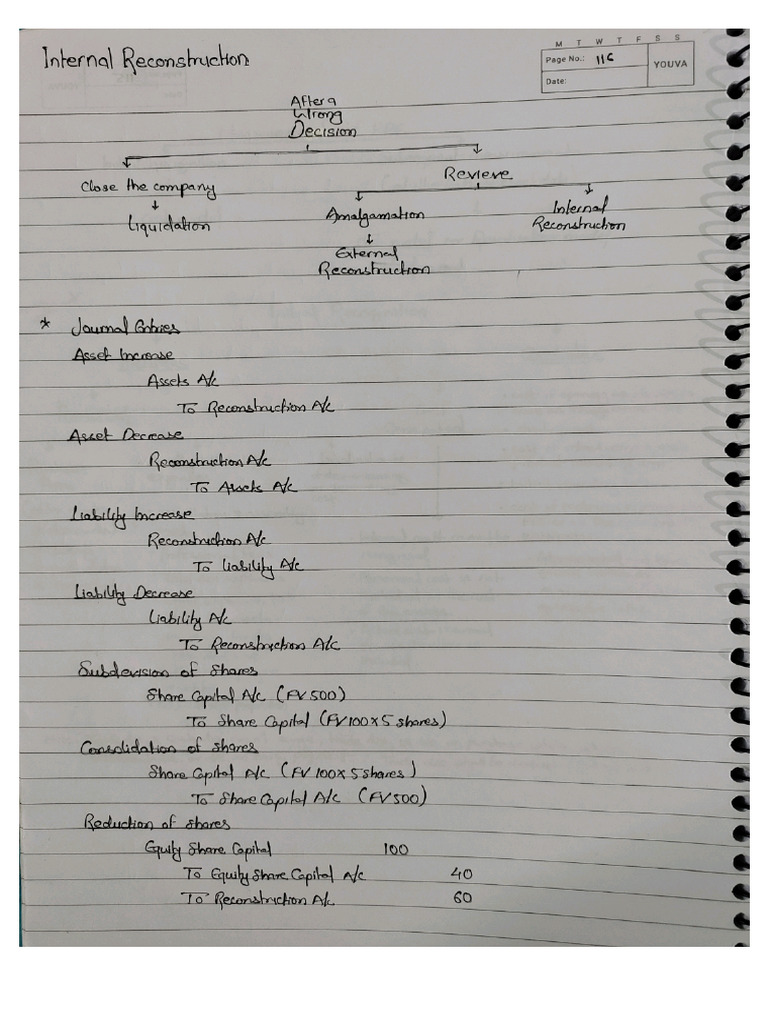 Internal Reconstruction
M T W T F S S
Page No.: 116
YOUVA
Date:
After a
Wrong
Decision
Close the company
Revieve
Liquidation
Amalgamation
Internal
Reconstruction
External
Reconstruction
* Journal Entries
Asset Increase
Assets A/c
To Reconstruction A/c
Asset Decrease
Reconstruction A/c
To Assets A/c
Liability Increase
Reconstruction A/c
To Liability A/c
Liability Decrease
Liability A/c
To Reconstruction A/c
Subdevision of shares
Share Capital A/c (FV 500)
To Share Capital (FV 100 x 5 shares)
Consolidation of shares
Share Capital A/c (FV 100 x 5 shares)
To Share Capital A/c (FV 500)
Reduction of shares
Equity Share Capital 100
To Equity Share Capital A/c 40
To Reconstruction A/c 60